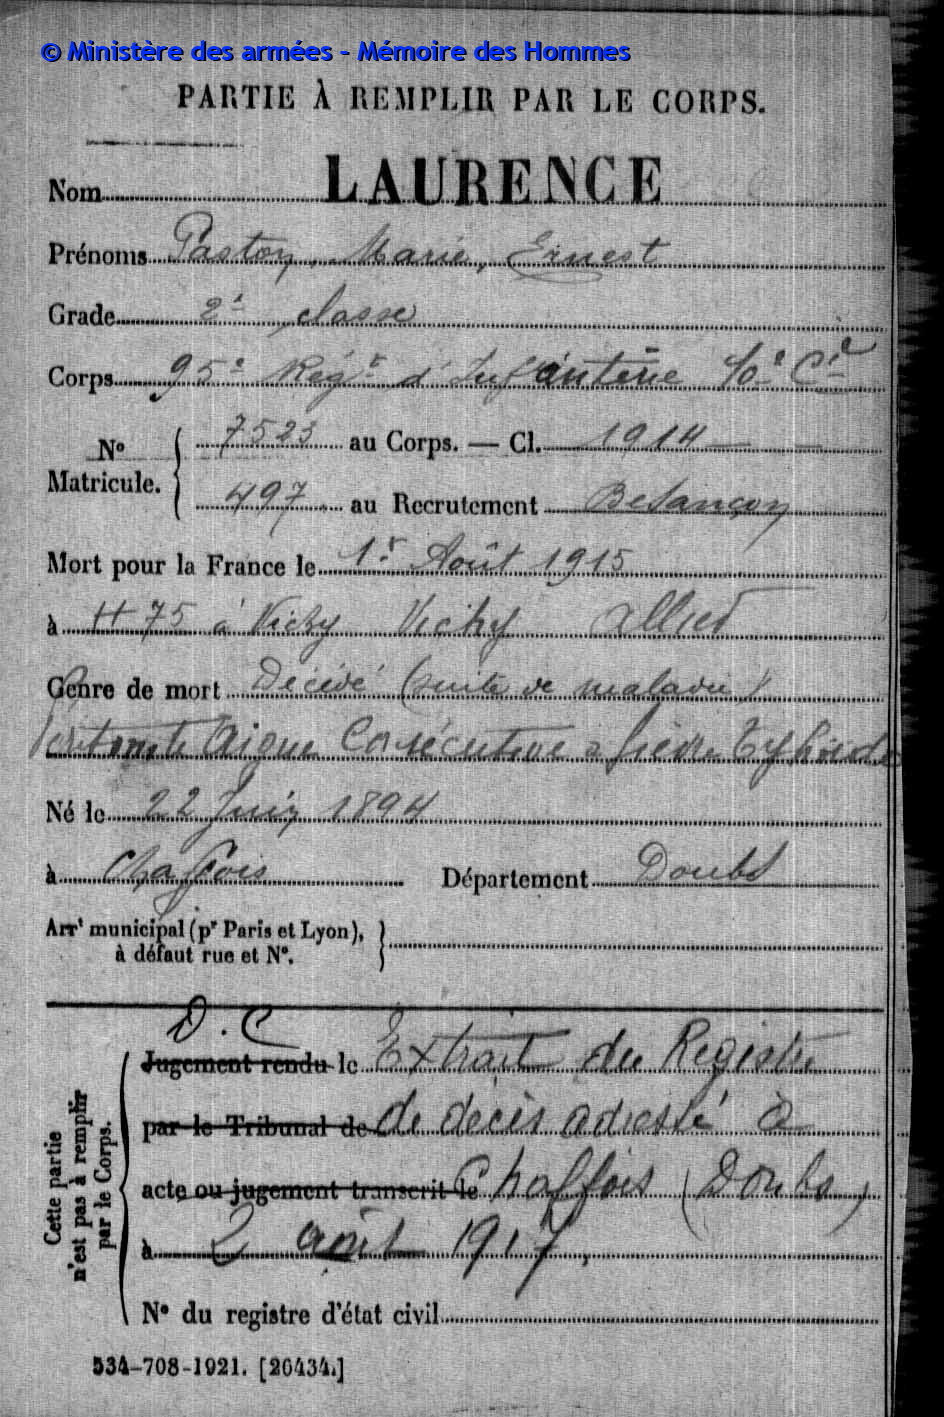 © Ministère des armées - Mémoire des Hommes
PARTIE À REMPLIR PAR LE CORPS.
Nom LAURENCE
Prénoms Gaston, Marie, Ernest
Grade 2e classe
Corps 95e Régt d'Infanterie 10e Cie
No Matricule. 7523 au Corps. — Cl. 1914
497 au Recrutement Besançon
Mort pour la France le 1r Août 1915
à H 75 à Vichy Vichy Allier
Genre de mort Décédé (suite de maladie)
Péritonite aigue Consécutive a fièvre typhoide
Né le 22 Juin 1894
à Chaffois Département Doubs
Arrt municipal (pr Paris et Lyon),
à défaut rue et No.
D.C
Jugement rendu le Extrait du Registre
par le Tribunal de de décès adressé à
acte ou jugement transcrit le Chaffois (Doubs)
à 2 août 1917,
No du registre d'état civil
Cette partie
n'est pas à remplir
par le Corps.
534-708-1921. [26434.]